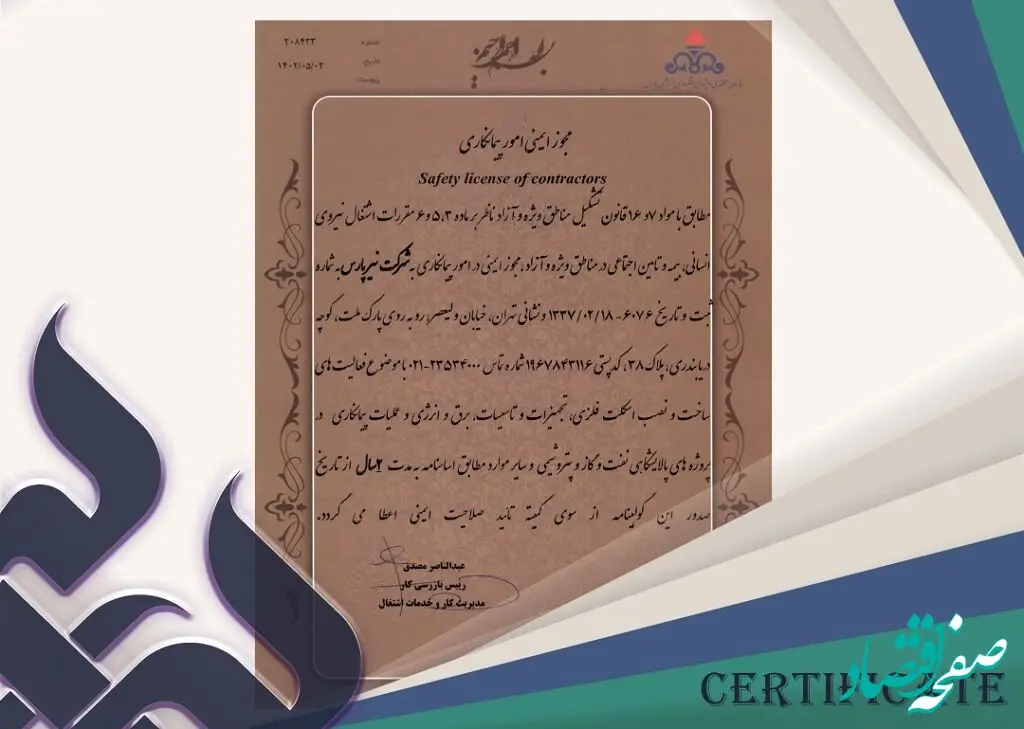 شماره ۲۰۸۴۳۳
تاریخ ۱۴۰۲/۰۵/۰۳
پیوست
مجوز ایمنی امور پیمانکاری
Safety license of contractors
مطابق با مواد ۷ و ۱۶ قانون تشکیل مناطق ویژه و آزاد ناظر بر ماده ۵،۳ و ۶ مقررات اشتغال نیروی
انسانی، بیمه و تامین اجتماعی در مناطق ویژه و آزاد، مجوز ایمنی در امور پیمانکاری به شرکت نیرپارس به شماره
ثبت و تاریخ ۶۰۷۶ - ۱۳۳۷/۰۲/۱۸ و نشانی تهران، خیابان ولیعصر، رو به روی پارک ملت، کوچه
دریابندری، پلاک ۳۸، کدپستی ۱۹۶۷۸۴۳۱۱۶ شماره تماس ۰۲۱-۲۳۵۳۴۰۰۰ با موضوع فعالیت های
ساخت و نصب اسکلت فلزی، تجهیزات و تاسیسات، برق و انرژی و عملیات پیمانکاری در
پروژه های پالایشگاهی نفت و گاز و پتروشیمی و سایر موارد مطابق اساسنامه به مدت ۲سال از تاریخ
صدور این گواهینامه از سوی کمیته تائید صلاحیت ایمنی اعطا می گردد.
عبدالناصر مصدق
رئیس بازرسی کار
مدیریت کار و خدمات اشتغال
صفحه اقتصاد
CERTIFICATE